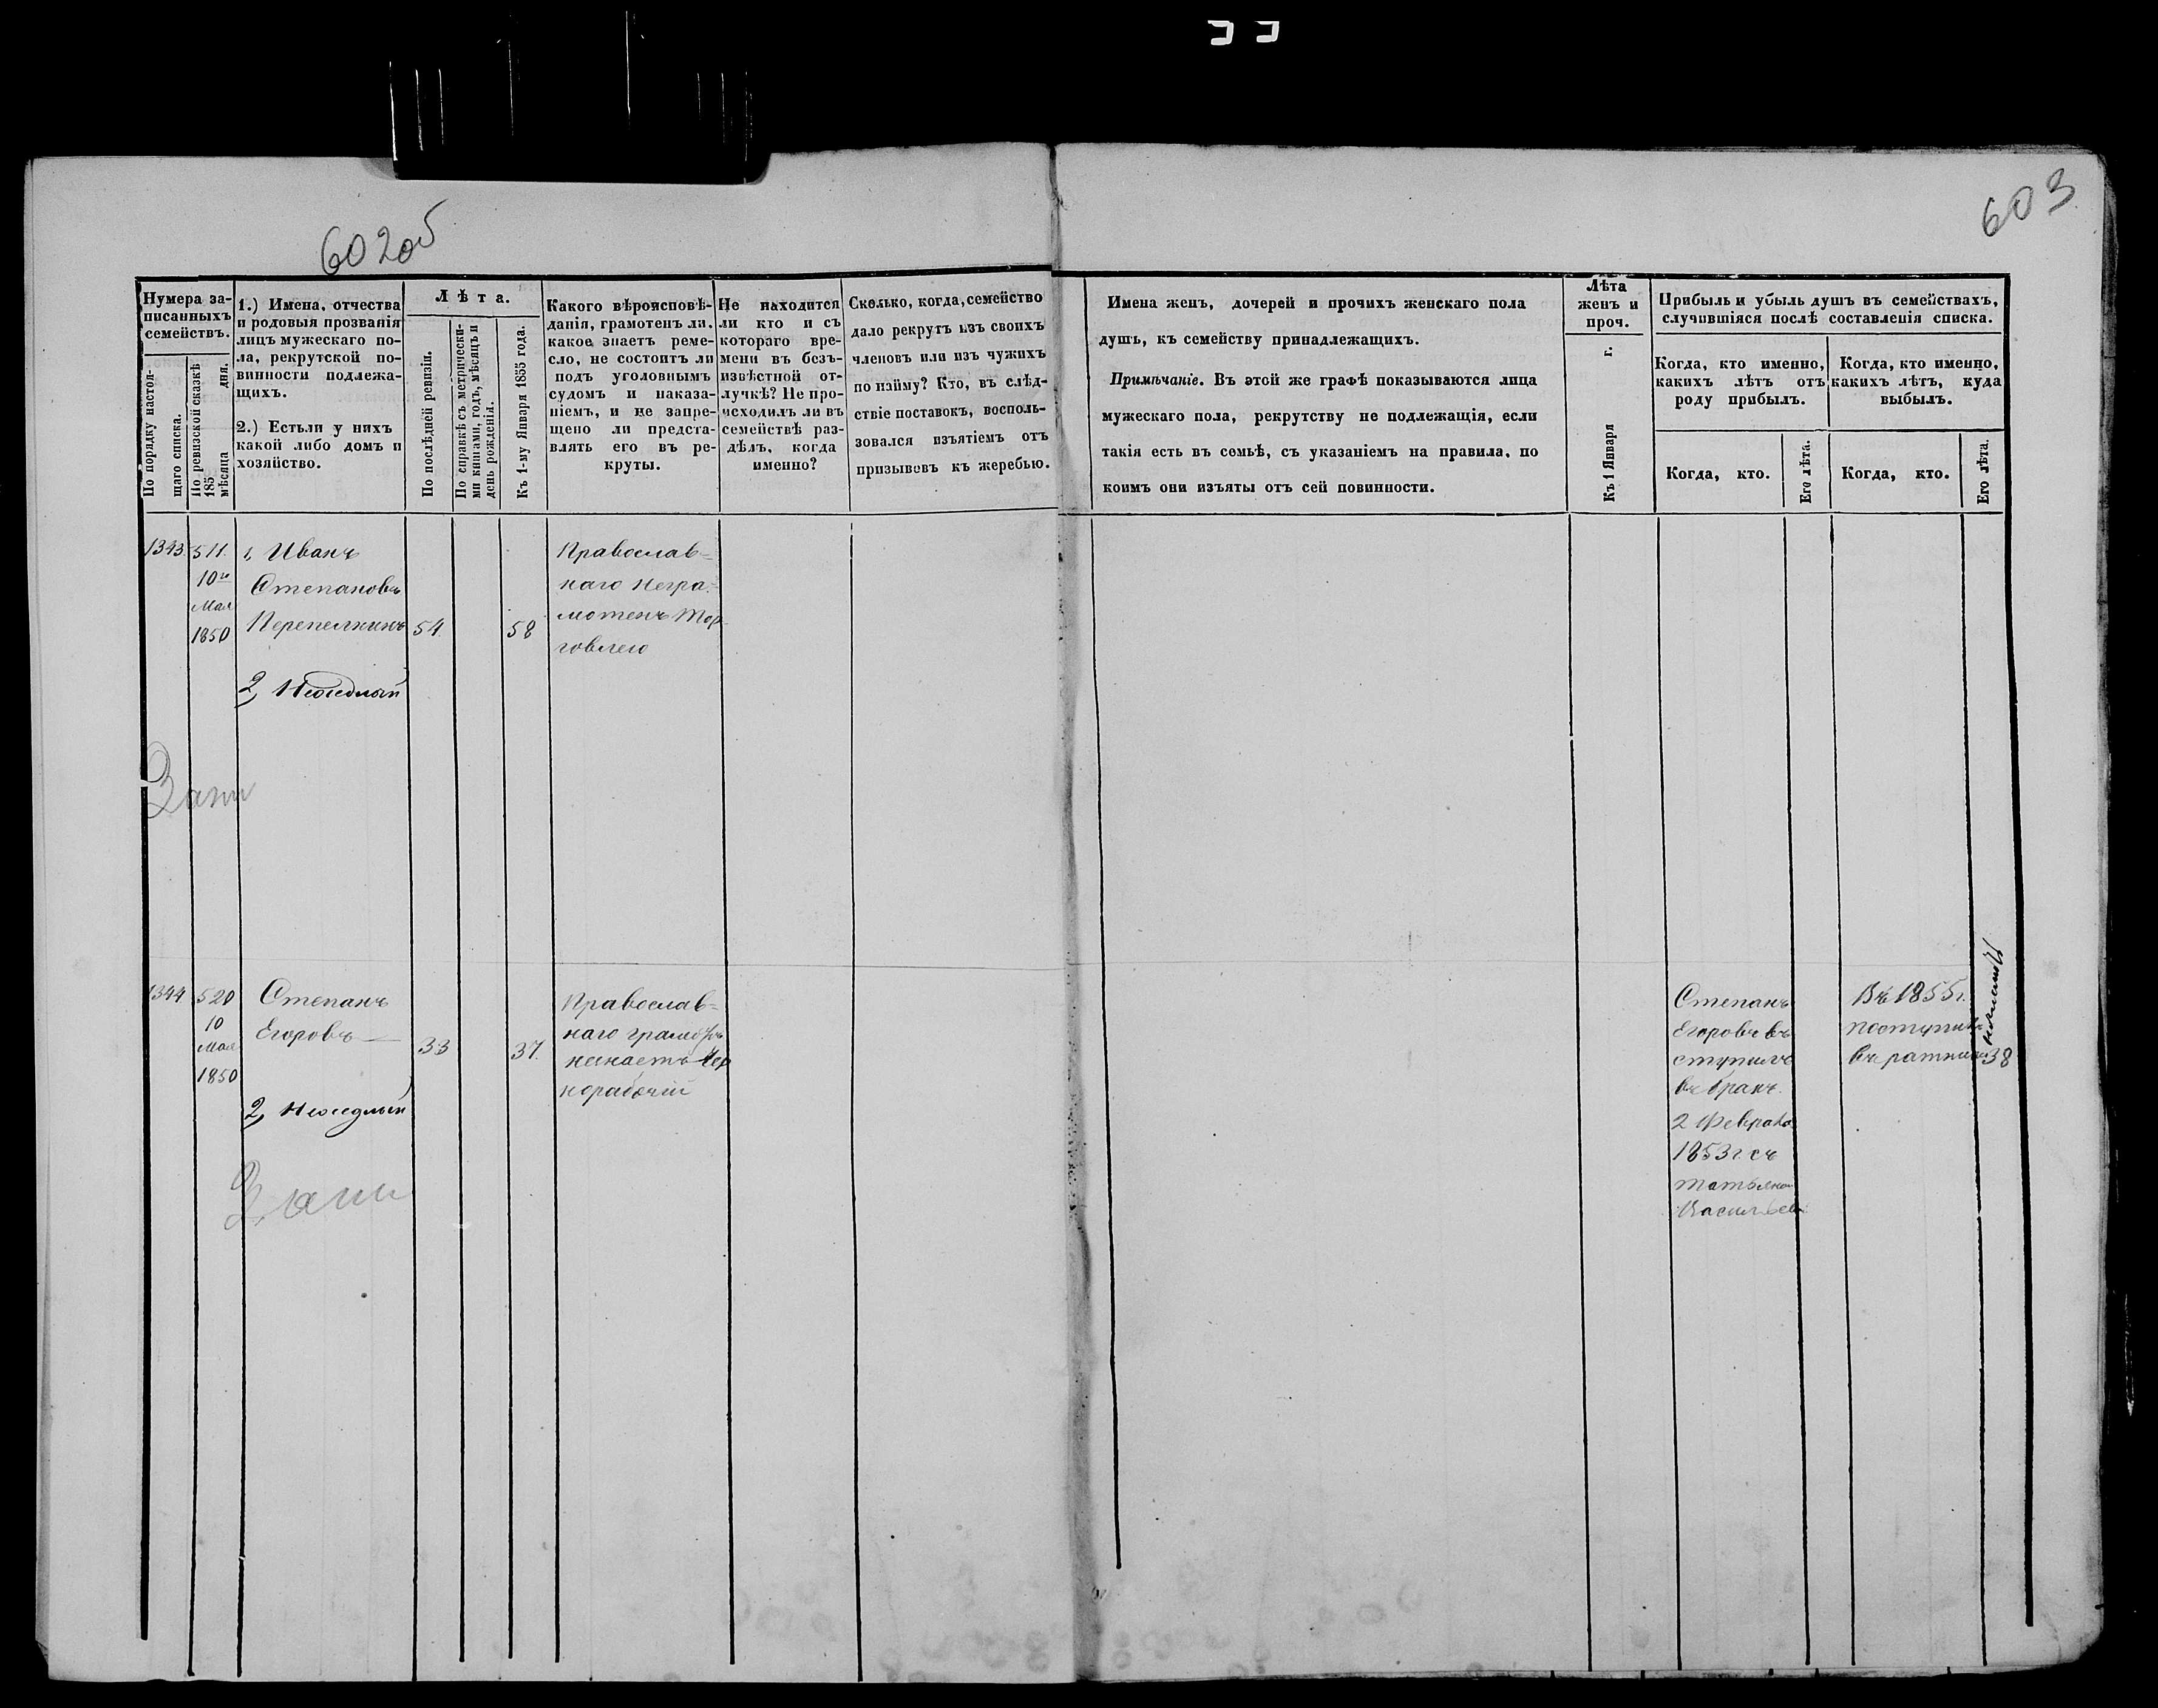 602об
603
Нумера за-
писанныхъ
семействъ.
По порядку настоя-
щаго списка.
По ревизской сказкѣ
185 дня.
мѣсяца
1.) Имена, отчества
и родовыя прозванія
лицъ мужескаго по-
ла, рекрутской по-
винности подлежа-
щихъ.
2.) Естьли у нихъ
какой либо домъ и
хозяйство.
Лѣта.
По послѣдней ревизіи.
По справкѣ съ метрически-
ми книгами, годъ, мѣсяцъ и
день рожденія.
Къ 1-му Января 1855 года.
Какого вѣроисповѣ-
данія, грамотенъ ли,
какое знаетъ реме-
сло, не состоитъ ли
подъ уголовнымъ
судомъ и наказа-
ніемъ, и не запре-
щено ли предста-
влять его въ ре-
круты.
Не находится
ли кто и съ
котораго вре-
мени въ безъ-
извѣстной от-
лучкѣ? Не про-
исходилъ ли въ
семействѣ раз-
дѣлъ, когда
именно?
Сколько, когда, семейство
дало рекрутъ изъ своихъ
членовъ или изъ чужихъ
по найму? Кто, въ слѣд-
ствіе поставокъ, восполь-
зовался изъятіемъ отъ
призывовъ къ жеребью.
Имена женъ, дочерей и прочихъ женскаго пола
душъ, къ семейству принадлежащихъ.
Примѣчаніе. Въ этой же графѣ показываются лица
мужескаго пола, рекрутству не подлежащія, если
такія есть въ семьѣ, съ указаніемъ на правила, по
коимъ они изъяты отъ сей повинности.
Лѣта
женъ и
проч.
Къ 1 Января г.
Прибыль и убыль душъ въ семействахъ,
случившіяся послѣ составленія списка.
Когда, кто именно,
какихъ лѣтъ отъ
роду прибылъ.
Когда, кто именно,
какихъ лѣтъ, куда
выбылъ.
Когда, кто.
Его лѣта.
Когда, кто.
Его лѣта.
1343.
511.
10го
Мая
1850
1, Иванъ
Степановъ
Перепелкинъ
54.
58
2, Неоседлый
Православ=
наго негра-
мотенъ Тор
говлею
1344
520
10
Мая
1850
Степанъ
Егоровъ
33
37.
2, Неоседлый
Православ=
наго
незнаетъ Чер
норабочій
Степанъ
Егоровъ въ
ступилъ
въ бракъ
2 Февраля
1853 г. съ
Татьяной
Васильев
Въ 1855 г.
поступилъ
въ ратники
38